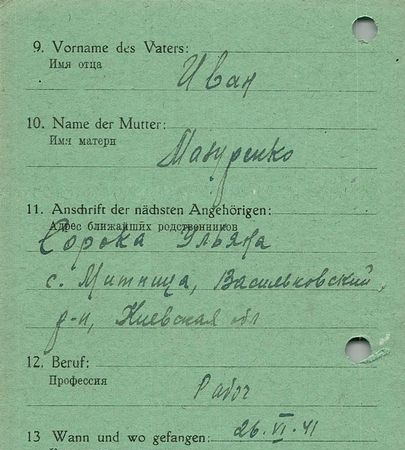 9. Vorname des Vaters:
Имя отца
Иван
10. Name der Mutter:
Имя матери
Мазуренко
11. Anschrift der nächsten Angehörigen:
Адрес ближайших родственников
Сорока Ульяна
с. Митница, Васильковский
р-н, Киевская обл
12. Beruf:
Профессия
Рабоч
13 Wann und wo gefangen: 26.VI.41